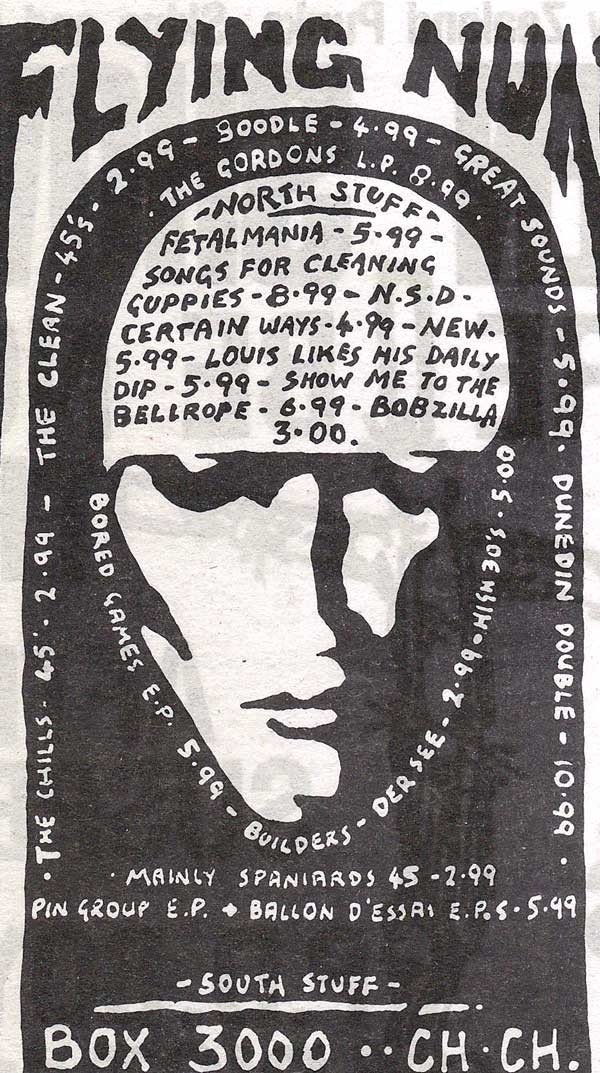 FLYING NUN
· THE CHILLS · 45'· 2.99 – THE CLEAN - 45'S - 2.99 - BOODLE - 4.99 - GREAT SOUNDS - 5.99. DUNEDIN DOUBLE - 10.99.
· THE GORDONS L.P. 8.99.
- NORTH STUFF -
FETALMANIA - 5.99 -
SONGS FOR CLEANING
GUPPIES - 8.99 - N.S.D.
CERTAIN WAYS - 4.99 - NEW.
5.99 - LOUIS LIKES HIS DAILY
DIP - 5.99 - SHOW ME TO THE
BELLROPE - 6.99 - BOBZILLA
3.00.
BORED GAMES E.P. 5.99 - BUILDERS - DER SEE - 2.99 - HIGH 30'S · 5.00
· MAINLY SPANIARDS 45 - 2.99
PIN GROUP E.P. + BALLON D'ESSAI E.P.S · 5.99
- SOUTH STUFF -
BOX 3000 ·· CH·CH.